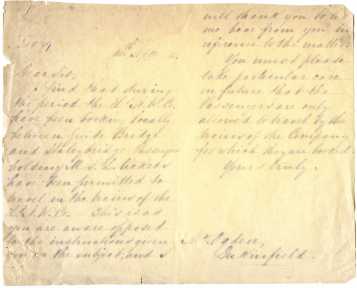 Dear Sir,
I find that during
the period the L. & N. W. Co.
have been booking locally
between Guide Bridge
and Stalybridge, Passengers
holding M. S. & L. tickets
have been permitted to
travel in the trains of the
L. & N. W. Co. This is as
you are aware opposed
to the instructions given
on the subject, and I
will thank you to let
me hear from you in
reference to the matter.
You must please
take particular care
in future that the
Passengers are only
allowed to travel by the
trains of the Company
for which they are booked.
Yours truly.
Mr Ogden,
Dukinfield.